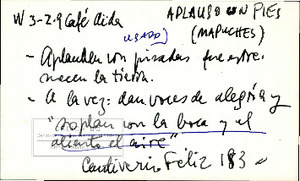 W 3-2.9 Café Aida APLAUSO CON PIES
USADO) (MAPUCHES)
- Aplauden con pisadas que estre-
mecen la tierra.
- A la vez: dan voces de alegría y
"soplan con la boca y el
aliento el aire"
Cautiverio Feliz 183